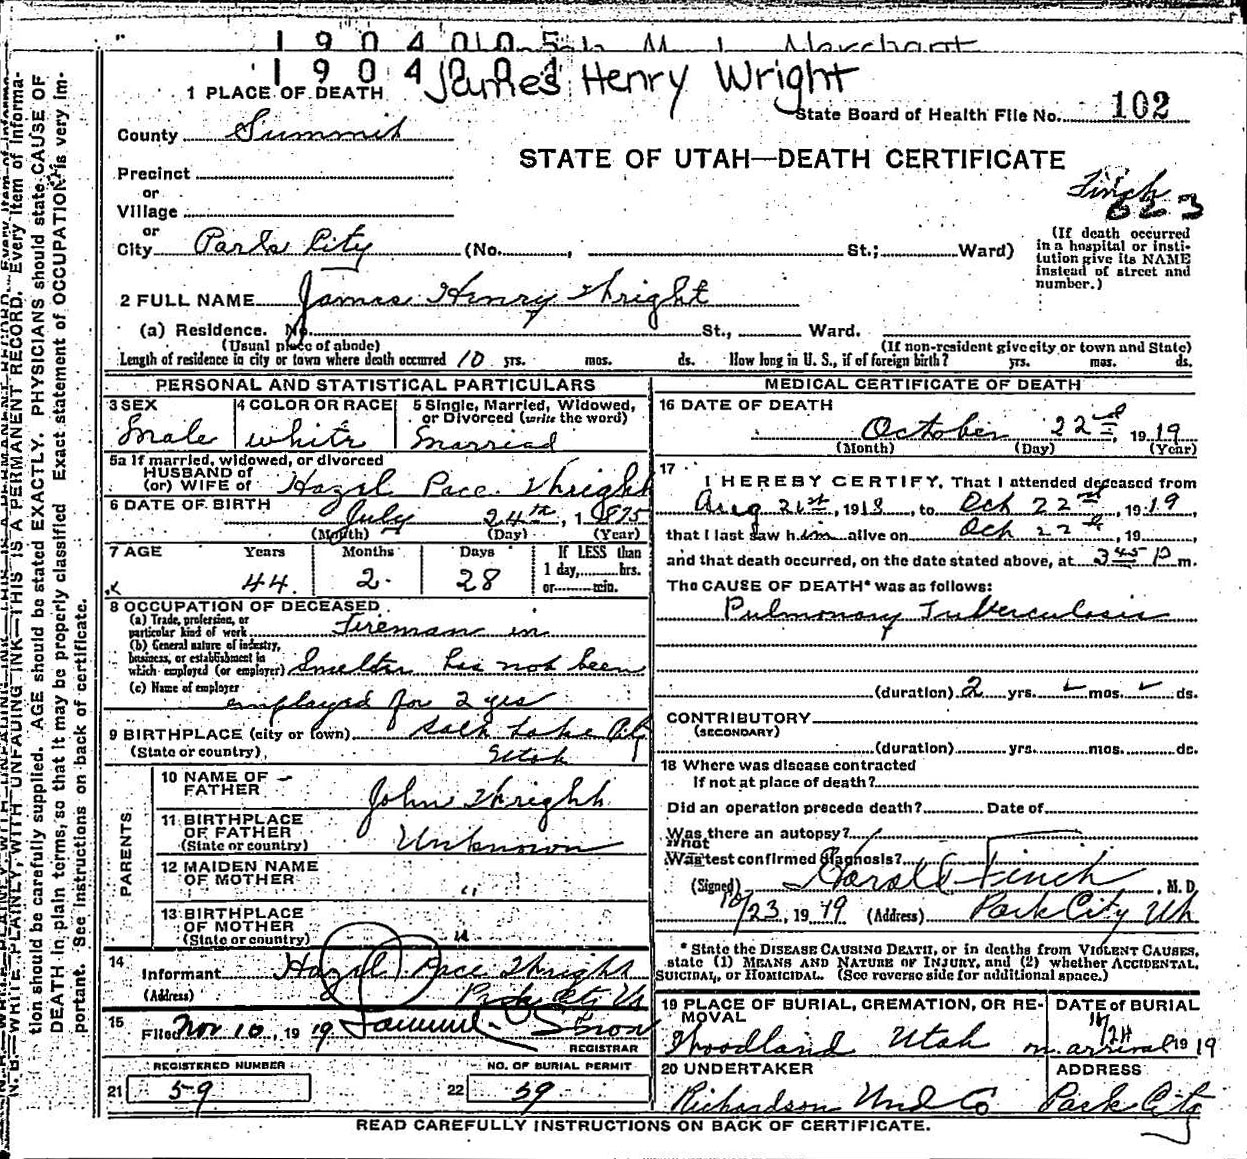 1904005
1904001
James Henry Wright
1 PLACE OF DEATH
State Board of Health File No. 102
County Summit
STATE OF UTAH—DEATH CERTIFICATE
Precinct
Finch
623
or
Village
or
City Park City (No. , St.; Ward)
(If death occurred in a hospital or insti-
tution give its NAME
instead of street and
number.)
2 FULL NAME James Henry Wright
(a) Residence. No. St., Ward.
(Usual place of abode) (If non-resident give city or town and State)
Length of residence in city or town where death occurred 10 yrs. mos. ds. How long in U. S., if of foreign birth? yrs. mos. ds.
PERSONAL AND STATISTICAL PARTICULARS
3 SEX Male
4 COLOR OR RACE white
5 Single, Married, Widowed,
or Divorced (write the word)
Married
5a If married, widowed, or divorced
HUSBAND of
(or) WIFE of Hazel Pace Wright
6 DATE OF BIRTH
July 24th, 1875
(Month) (Day) (Year)
7 AGE Years Months Days If LESS than
1 day, hrs.
or min.
44 2 28
8 OCCUPATION OF DECEASED
(a) Trade, profession, or
particular kind of work Fireman in
(b) General nature of industry,
business, or establishment in
which employed (or employer) Smelter has not been
(c) Name of employer
employed for 2 yrs
9 BIRTHPLACE (city or town) Salt Lake City
(State or country) Utah
PARENTS
10 NAME OF
FATHER John Wright
11 BIRTHPLACE
OF FATHER
(State or country) Unknown
12 MAIDEN NAME
OF MOTHER "
13 BIRTHPLACE
OF MOTHER
(State or country) "
14
Informant Hazel Pace Wright
(Address) Park City Ut
15
Filed Nov 10, 1919
REGISTRAR
REGISTERED NUMBER
21 59
NO. OF BURIAL PERMIT
22 59
MEDICAL CERTIFICATE OF DEATH
16 DATE OF DEATH
October 22nd, 1919
(Month) (Day) (Year)
17
I HEREBY CERTIFY, That I attended deceased from
Aug 21st, 1918, to Oct 22nd, 1919,
that I last saw him alive on Oct 22nd, 19 ,
and that death occurred, on the date stated above, at 3 45 P m.
The CAUSE OF DEATH* was as follows:
Pulmonary Tuberculosis
(duration) 2 yrs. mos. ds.
CONTRIBUTORY
(SECONDARY)
(duration) yrs. mos. ds.
18 Where was disease contracted
If not at place of death?
Did an operation precede death? Date of
Was there an autopsy?
What
Was test confirmed diagnosis?
(Signed) Finch, M. D.
10/23, 1919 (Address) Park City Ut
* State the DISEASE CAUSING DEATH, or in deaths from VIOLENT CAUSES,
state (1) MEANS AND NATURE OF INJURY, and (2) whether ACCIDENTAL,
SUICIDAL, or HOMICIDAL. (See reverse side for additional space.)
19 PLACE OF BURIAL, CREMATION, OR RE-
MOVAL
Woodland Utah
DATE of BURIAL
10/24
on arrival 1919
20 UNDERTAKER
Richardson Und Co
ADDRESS
Park City
READ CAREFULLY INSTRUCTIONS ON BACK OF CERTIFICATE.
N. B.—WRITE PLAINLY, WITH UNFADING INK—THIS IS A PERMANENT RECORD. Every item of informa-
tion should be carefully supplied. AGE should be stated EXACTLY. PHYSICIANS should state CAUSE OF
DEATH in plain terms, so that it may be properly classified. Exact statement of OCCUPATION is very im-
portant. See instructions on back of certificate.